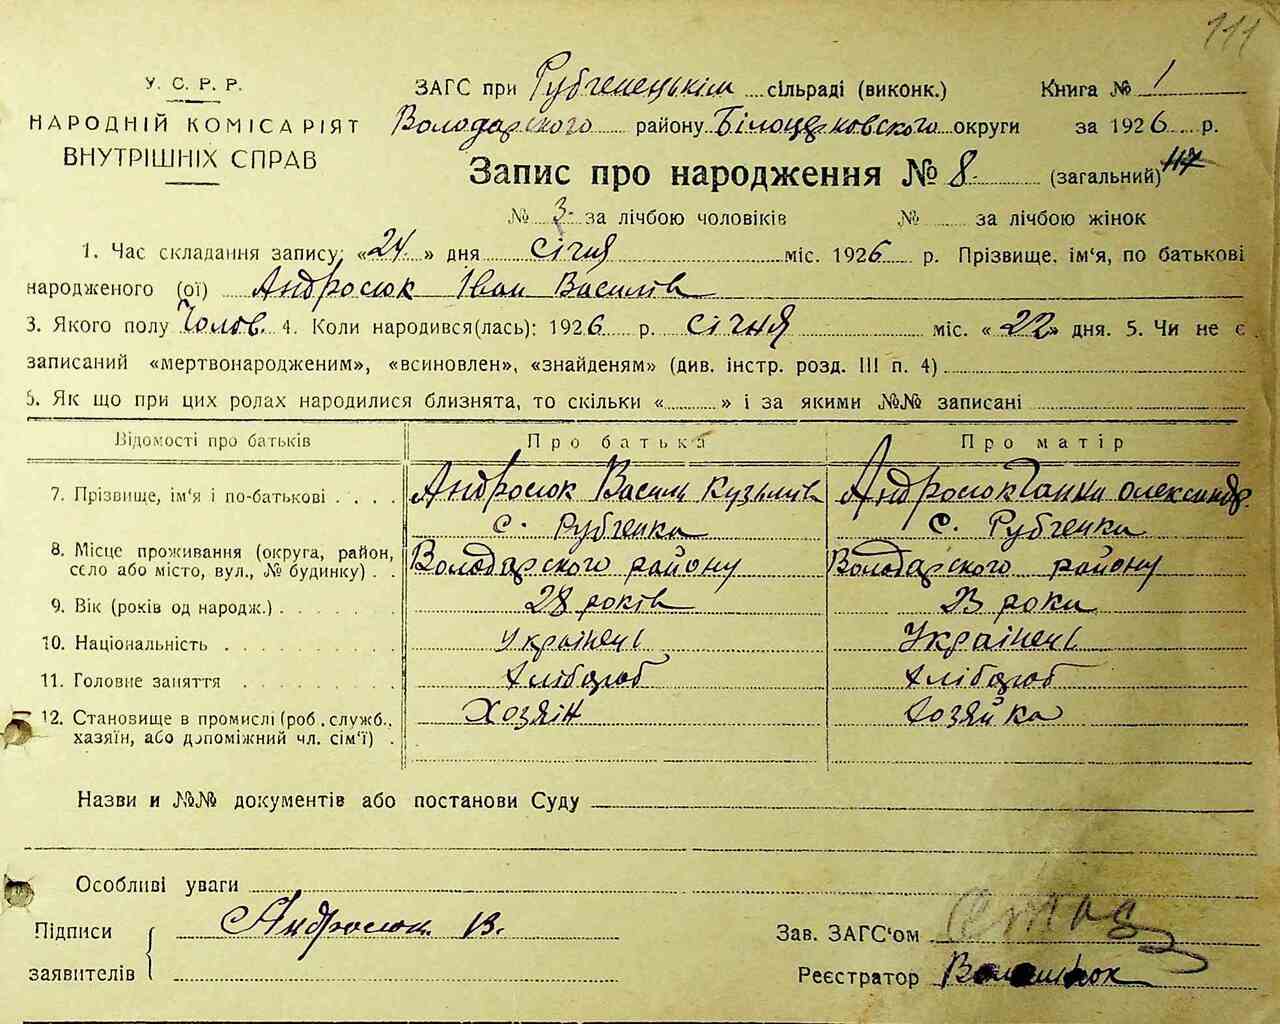 111
У. С. Р. Р.
НАРОДНІЙ КОМІСАРІЯТ
ВНУТРІШНІХ СПРАВ
ЗАГС при Рубченецькім сільраді (виконк.) Книга № 1
Володарского району Білоцерковского округи за 1926 р.
Запис про народження № 8 (загальний) 117
№ 3 за лічбою чоловіків № за лічбою жінок
1. Час складання запису: «24» дня січня міс. 1926 р. Прізвище, ім'я, по батькові
народженого (ої) Андросюк Іван Василів
3. Якого полу Чолов. 4. Коли народився(лась): 1926 р. січня міс. «22» дня. 5. Чи не є
записаний «мертвонародженим», «всиновлен», «знайденям» (див. інстр. розд. III п. 4)
6. Як що при цих родах народилися близнята, то скільки « » і за якими №№ записані
Відомості про батьків Про батька Про матір
7. Прізвище, ім'я і по-батькові Андросюк Василь Кузьмів Андросюк Ганна Олександр.
с. Рубченка с. Рубченка
8. Місце проживання (округа, район, село або місто, вул., № будинку) Володарского району Володарского району
9. Вік (років од народж.) 28 років 23 роки
10. Національність Українець Українець
11. Головне заняття Хлібороб Хлібороб
12. Становище в промислі (роб., служб., Хозяін Хозяйка
хазяїн, або допоміжний чл. сім'ї)
Назви и №№ документів або постанови Суду
Особливі уваги
Підписи Андросюк В.
заявителів
Зав. ЗАГС'ом
Реєстратор